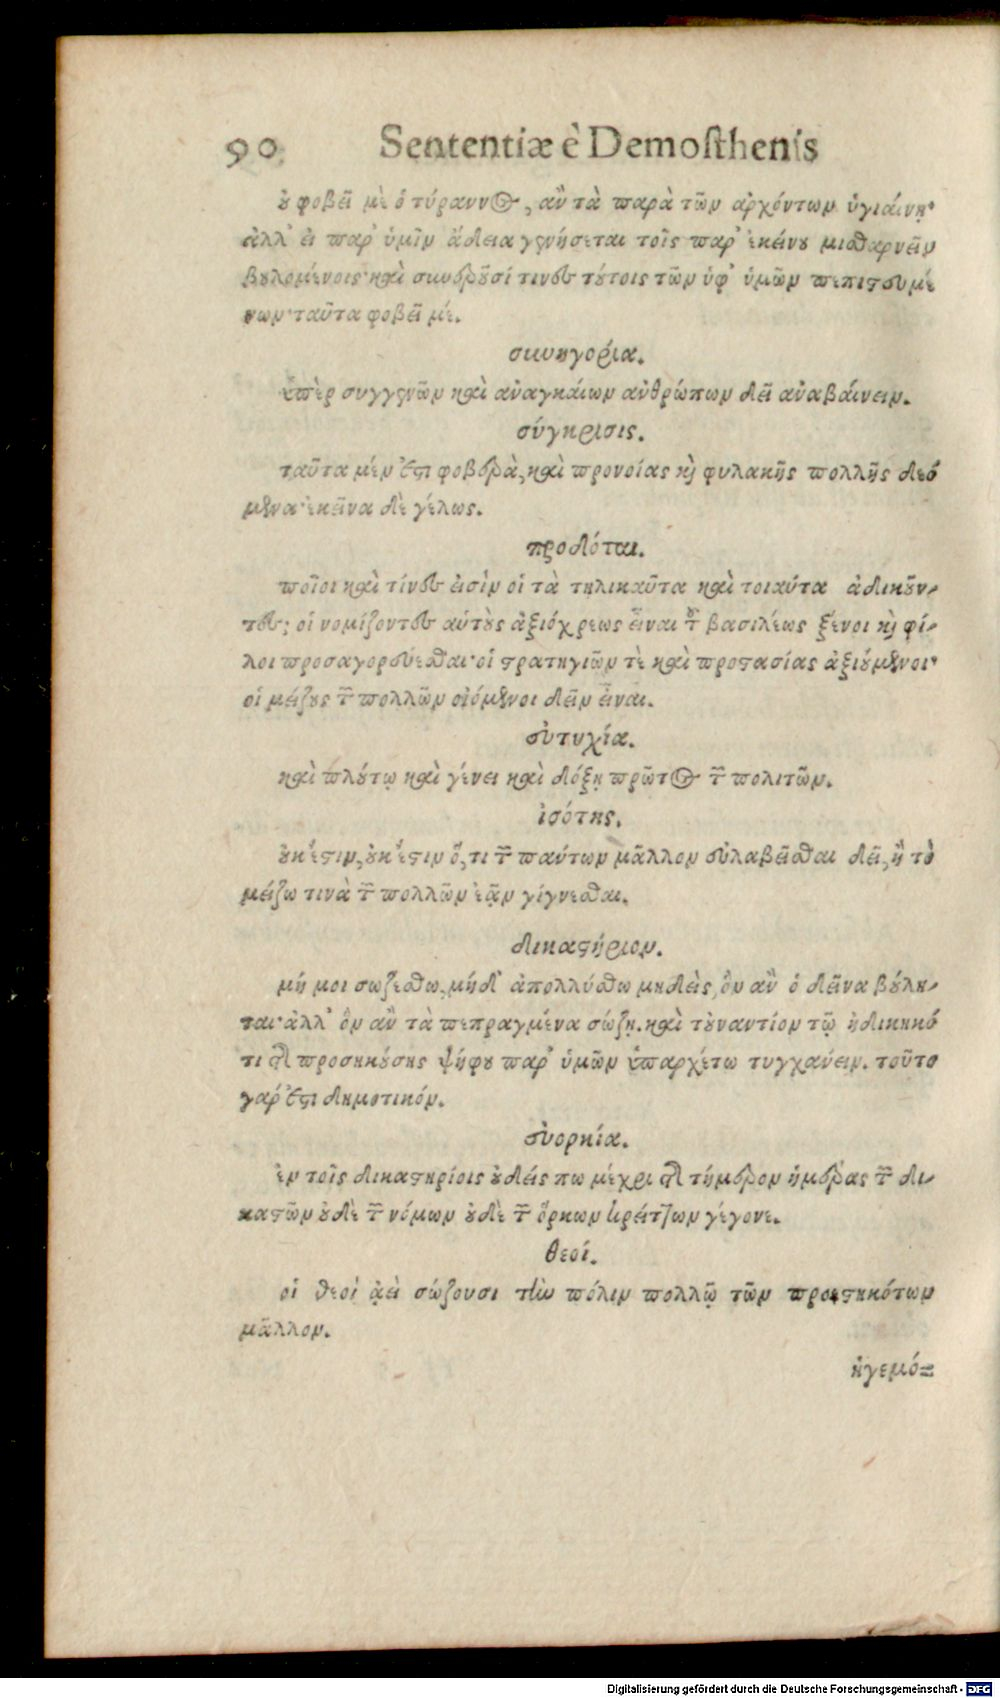 90 Sententiæ è Demosthenis
οὐ φοβεῖ μὲ ὁ τύραννος, ἂν τὰ παρὰ τῶν ἀρχόντων ὑγιαίνῃ·
ἀλλ' εἰ παρ' ὑμῖν ἄδεια γενήσεται τοῖς παρ' ἐκείνου μισθαρνεῖν
βουλομένοις· καὶ συνεροῦσί τινες τούτοις τῶν ὑφ' ὑμῶν πεπιστευμέ
νων· ταῦτα φοβεῖ μέ.
συνηγορία.
ὑπὲρ συγγενῶν καὶ ἀναγκαίων ἀνθρώπων δεῖ ἀναβαίνειν.
σύγκρισις.
ταῦτα μέν ἐστι φοβερὰ, καὶ προνοίας καὶ φυλακῆς πολλῆς δεό
μενα· ἐκεῖνα δὲ γέλως.
προδόται.
ποῖοι καὶ τίνες εἰσὶν οἱ τὰ τηλικαῦτα καὶ τοιαύτα ἀδικοῦν-
τες; οἱ νομίζοντες αὑτοὺς ἀξιόχρεως εἶναι τοῦ βασιλέως ξένοι καὶ φί-
λοι προσαγορεύεσθαι· οἱ στρατηγιῶν τὲ καὶ προστασίας ἀξιούμενοι·
οἱ μείζους τῶν πολλῶν οἰόμενοι δεῖν εἶναι.
εὐτυχία.
καὶ πλούτῳ καὶ γένει καὶ δόξῃ πρῶτος τῶν πολιτῶν.
ἰσότης.
οὐκ ἔστιν, οὐκ ἔστιν ὅ, τι τῶν πάντων μᾶλλον εὐλαβεῖσθαι δεῖ, ἢ τὸ
μείζω τινὰ τῶν πολλῶν ἐᾷν γίγνεσθαι.
δικαστήριον.
μή μοι σωζέσθω, μήδ' ἀπολλύσθω μηδεὶς, ὃν ἂν ὁ δεῖνα βούλη-
ται· ἀλλ' ὃν ἂν τὰ πεπραγμένα σώζῃ. καὶ τοὐναντίον τῷ ἠδικηκό
τι τῆς προσηκούσης ψήφου παρ' ὑμῶν ὑπαρχέτω τυγχάνειν. τοῦτο
γάρ ἐστι δημοτικόν.
εὐορκία.
ἐν τοῖς δικαστηρίοις οὐδείς πω μέχρι τῆς τήμερον ἡμέρας τῶν δι-
καστῶν οὐδὲ τῶν νόμων οὐδὲ τῶν ὅρκων κρείττων γέγονε.
θεοί.
οἱ θεοὶ ἀεὶ σώζουσι τὴν πόλιν πολλῷ τῶν προεστηκότων
μᾶλλον.
ἡγεμό-
Digitalisierung gefördert durch die Deutsche Forschungsgemeinschaft - DFG